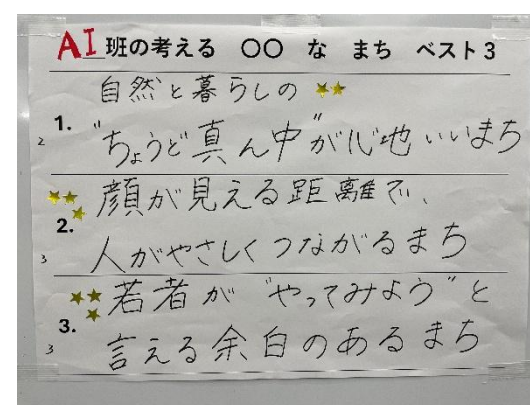 AI班の考える ○○ な まち ベスト3
自然と暮らしの
1. "ちょうど真ん中"が心地いいまち
2
顔が見える距離で、
2. 人がやさしくつながるまち
3
若者が "やってみよう" と
3. 言える余白のあるまち
3